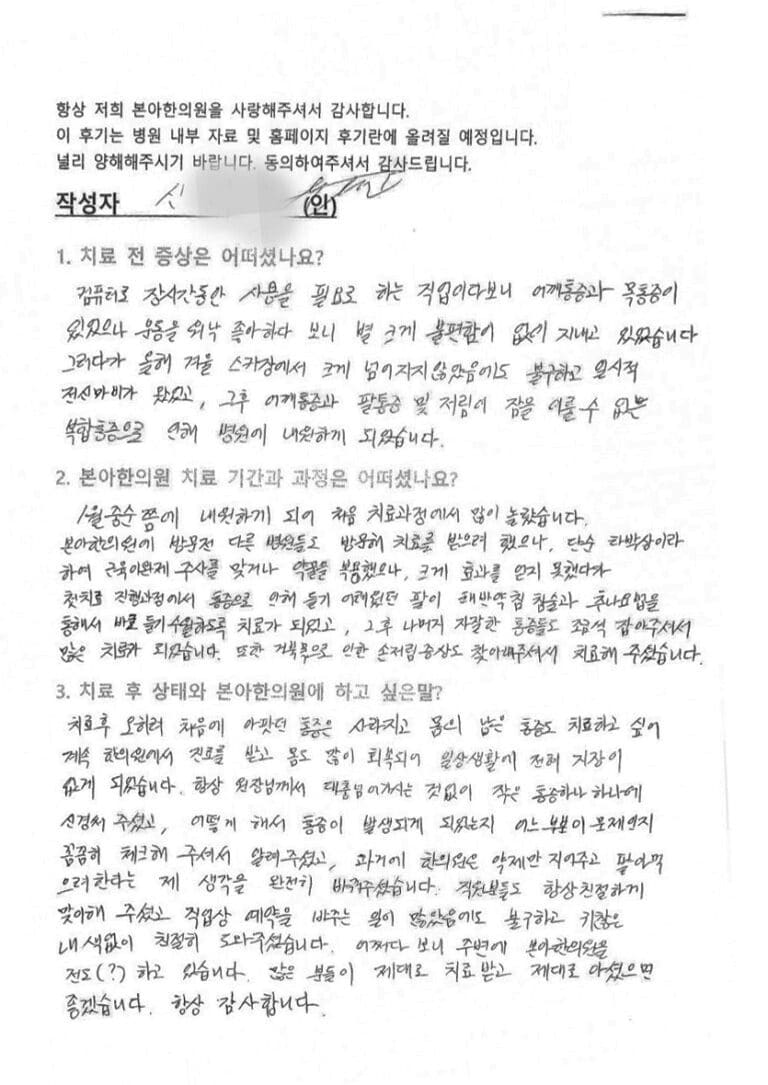 항상 저희 본아한의원을 사랑해주셔서 감사합니다.
이 후기는 병원 내부 자료 및 홈페이지 후기란에 올려질 예정입니다.
널리 양해해주시기 바랍니다. 동의하여주셔서 감사드립니다.
작성자 신 (인)
1. 치료 전 증상은 어떠셨나요?
컴퓨터로 장시간동안 사용을 필요로 하는 직업이다보니 어깨통증과 목통증이
있었으나 운동을 워낙 좋아하다 보니 별 크게 불편함이 없이 지내고 있었습니다
그러다가 올해 겨울 스키장에서 크게 넘어지지않았음에도 불구하고 일시적
전신마비가 왔었고, 그후 어깨통증과 팔통증 및 저림이 잠을 이룰 수 없는
복합통증으로 인해 병원에 내원하게 되었습니다.
2. 본아한의원 치료 기간과 과정은 어떠셨나요?
1월중순 쯤에 내원하게 되어 처음 치료과정에서 많이 놀랐습니다.
본아한의원에 방문전 다른 병원들도 방문해 치료를 받으려 했으나, 단순 타박상이라
하여 근육이완제 주사를 맞거나 약물을 복용했으나, 크게 효과를 얻지 못했다가
첫치료 진행과정에서 통증으로 인해 들기 어려웠던 팔이 해반약침 침술과 추나요법을
통해서 바로 들기 수월하도록 치료가 되었고, 그후 나머지 자잘한 통증들도 조금씩 잡아주셔서
많은 치료가 되었습니다. 또한 거북목으로 인한 손저림증상도 찾아내주셔서 치료해 주셨습니다.
3. 치료 후 상태와 본아한의원에 하고 싶은말?
치료후 오히려 처음에 아팟던 통증은 사라지고 몸의 남은 통증도 치료하고 싶어
계속 한의원에서 진료를 받고 몸도 많이 회복되어 일상생활에 전혀 지장이
없게 되었습니다. 항상 원장님께서 대충넘어가시는 것없이 작은 통증하나 하나에
신경써 주셨고, 어떻게 해서 통증이 발생되게 되었는지 어느부분이 문제인지
꼼꼼히 체크해 주셔서 알려주셨고, 과거에 한의원은 약제만 지어주고 팔아먹
으려한다는 제 생각을 완전히 바꿔주셨습니다. 직원분들도 항상친절하게
맞이해 주셨고 직업상 예약을 바꾸는 일이 많았음에도 불구하고 귀찮은
내색없이 친절히 도와주셨습니다. 어쩌다 보니 주변에 본아한의원을
전도(?) 하고 있습니다. 많은 분들이 제대로 치료받고 제대로 아셨으면
좋겠습니다. 항상 감사합니다.